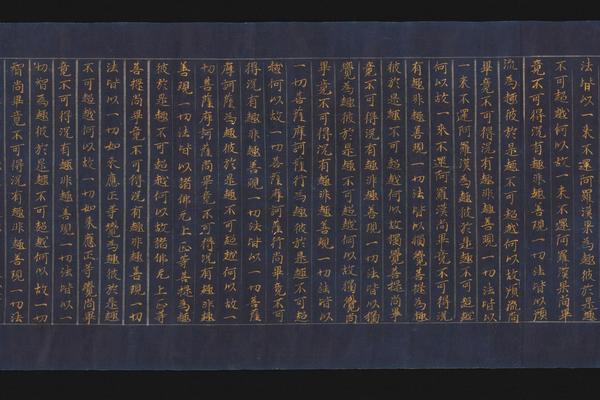 法皆以一来不還阿羅漢果為趣彼於是趣
不可超越何以故一来不還阿羅漢果尚畢
竟不可得況有趣非趣善現一切法皆以預
流為趣彼於是趣不可超越何以故預流尚
畢竟不可得況有趣非趣善現一切法皆以
一来不還阿羅漢為趣彼於是趣不可超越
何以故一来不還阿羅漢尚畢竟不可得況
有趣非趣善現一切法皆以獨覺菩提為趣
彼於是趣不可超越何以故獨覺菩提尚畢
竟不可得況有趣非趣善現一切法皆以獨
覺為趣彼於是趣不可超越何以故獨覺尚
畢竟不可得況有趣非趣善現一切法皆以
一切菩薩摩訶薩行為趣彼於是趣不可超
越何以故一切菩薩摩訶薩行尚畢竟不可
得況有趣非趣善現一切法皆以一切菩薩
摩訶薩為趣彼於是趣不可超越何以故一
切菩薩摩訶薩尚畢竟不可得況有趣非趣
善現一切法皆以諸佛无上正等菩提為趣
彼於是趣不可超越何以故諸佛无上正等
菩提尚畢竟不可得況有趣非趣善現一切
法皆以一切如来應正等覺為趣彼於是趣
不可超越何以故一切如来應正等覺尚畢
竟不可得況有趣非趣善現一切法皆以一
切智為趣彼於是趣不可超越何以故一切
智尚畢竟不可得況有趣非趣善現一切法